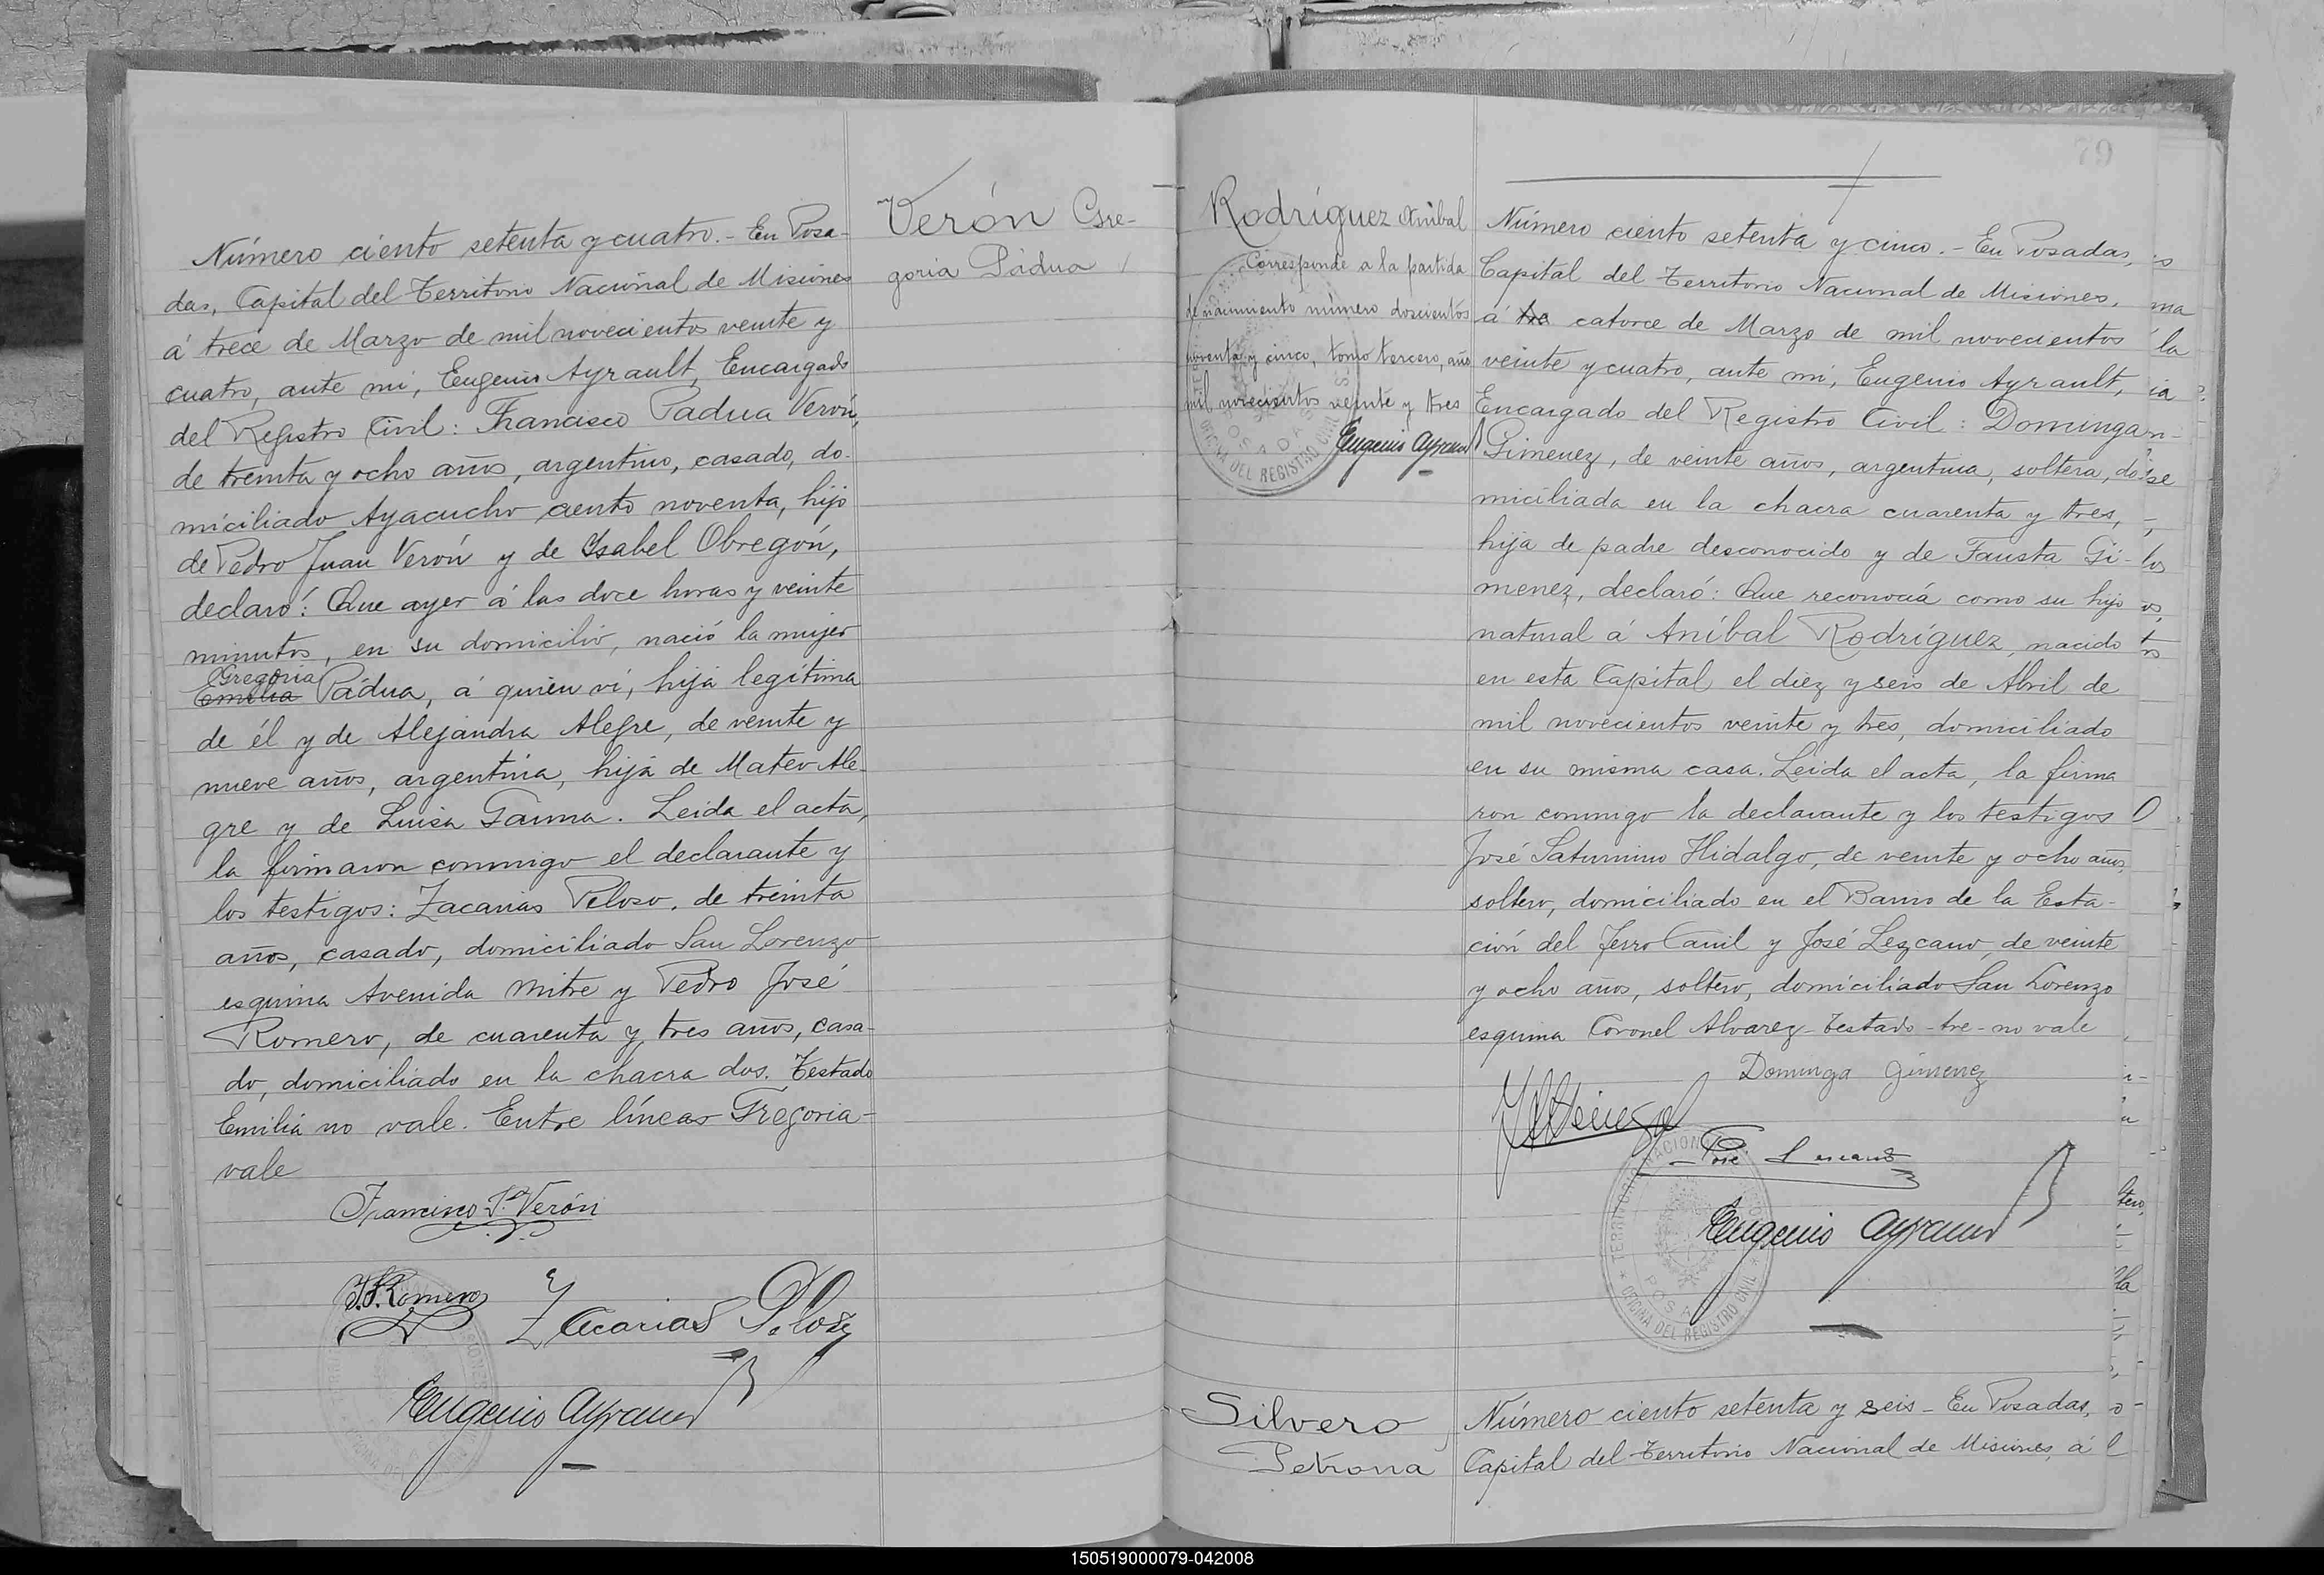 Verón Gre-
goria Pádua
Número ciento setenta y cuatro.- En Posa-
das, Capital del Territorio Nacional de Misiones
á trece de Marzo de mil novecientos veinte y
cuatro, ante mi, Eugenio Ayrault, Encargado
del Registro Civil: Francisco Padua Verón,
de treinta y ocho años, argentino, casado, do-
miciliado Ayacucho ciento noventa, hijo
de Pedro Juan Verón y de Ysabel Obregón,
declaró: Que ayer á las doce horas y veinte
minutos, en su domicilio, nació la mujer
Gregoria
Emilia Pádua, á quien vi, hija legítima
de él y de Alejandra Alegre, de veinte y
nueve años, argentina, hija de Mateo Ale-
gre y de Luisa Gauna. Leida el acta,
la firmaron conmigo el declarante y
los testigos: Zacarias Peloso, de treinta
años, casado, domiciliado San Lorenzo
esquina Avenida Mitre y Pedro José
Romero, de cuarenta y tres años, casa-
do, domiciliado en la chacra dos. Testado
Emilia no vale. Entre líneas Gregoria-
vale
Francisco P. Verón
J.P. Romero
Zacarias Peloso
Eugenio Ayrault
79
Rodríguez Aníbal
Corresponde a la partida
de nacimiento número doscientos
noventa y cinco, tomo tercero, año
mil novecientos veinte y tres
Eugenio Ayrault
Número ciento setenta y cinco.- En Posadas,
Capital del Territorio Nacional de Misiones,
á tre catorce de Marzo de mil novecientos
veinte y cuatro, ante mi, Eugenio Ayrault,
Encargado del Registro Civil: Dominga
Gimenez, de veinte años, argentina, soltera, do-
miciliada en la chacra cuarenta y tres,
hija de padre desconocido y de Fausta Gi-
menez, declaró: Que reconocía como su hijo
natural á Aníbal Rodríguez, nacido
en esta Capital el diez y seis de Abril de
mil novecientos veinte y tres, domiciliado
en su misma casa. Leida el acta, la firma
ron conmigo la declarante y los testigos
José Saturnino Hidalgo, de veinte y ocho años,
soltero, domiciliado en el Barrio de la Esta-
ción del Ferro Carril y José Lezcano, de veinte
y ocho años, soltero, domiciliado San Lorenzo
esquina Coronel Alvarez- Testado- tre- no vale
Dominga Gimenez
José Lezcano
TERRITORIO NACIONAL
OFICINA DEL REGISTRO CIVIL
POSADAS
Eugenio Ayrault
Silvero
Petrona
Número ciento setenta y seis- En Posadas,
Capital del Territorio Nacional de Misiones, á
150519000079-042008